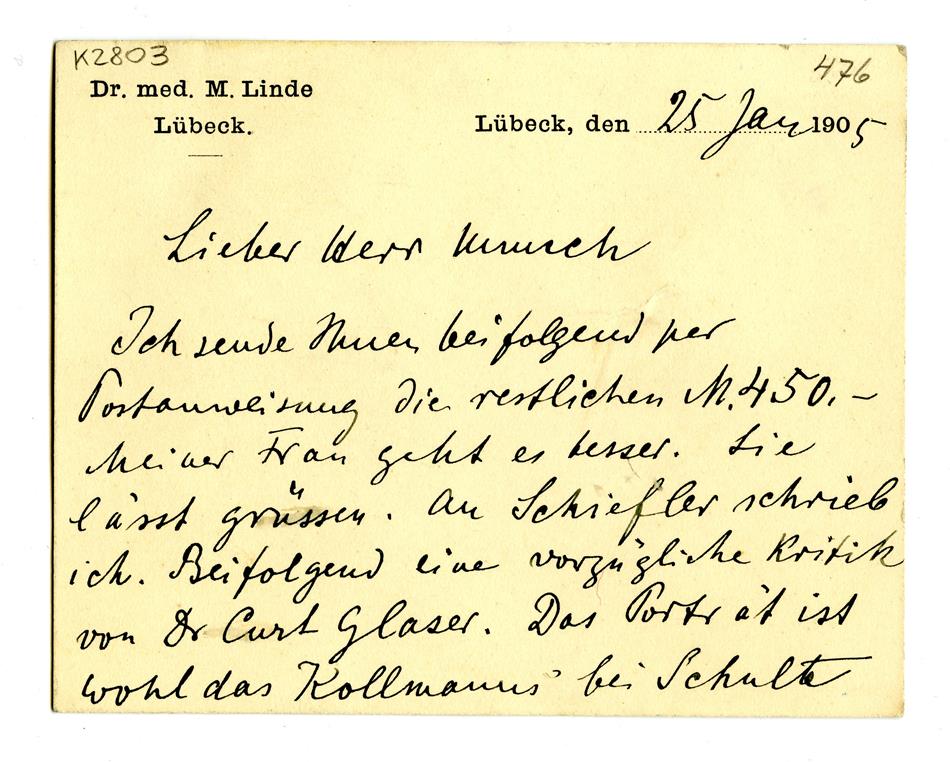 K2803
476
Dr. med. M. Linde
Lübeck.
Lübeck, den 25 Jan 1905
Lieber Herr Munch
Ich sende Ihnen beifolgend per
Postanweisung die restlichen M. 450.–
Meiner Frau geht es besser. Sie
lässt grüssen. An Schiefler schrieb
ich. Beifolgend eine vorzügliche Kritik
von Dr Curt Glaser. Das Porträt ist
wohl das Kollmanns' bei Schulte